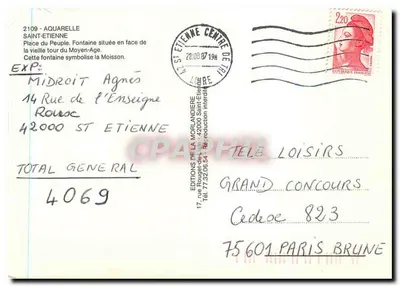 2109 - AQUARELLE
SAINT-ETIENNE
Place du Peuple. Fontaine située en face de
la vieille tour du Moyen-Age.
Cette fontaine symbolise la Moisson.
EXP:
MIDROIT Agnès
14 Rue de l'Enseigne
42000 ST ETIENNE
TOTAL GENERAL
4069
42 ST ETIENNE CENTRE DE TRI
LOIRE
2,20
EDITIONS DE LA MORLANDIERE
17, rue Rouget-des- 42000 Saint-Etienne
Tél. 77.32.06.54 - Reproduction interdite
TELE LOISIRS
GRAND CONCOURS
Cedex 823
75601 PARIS BRUNE